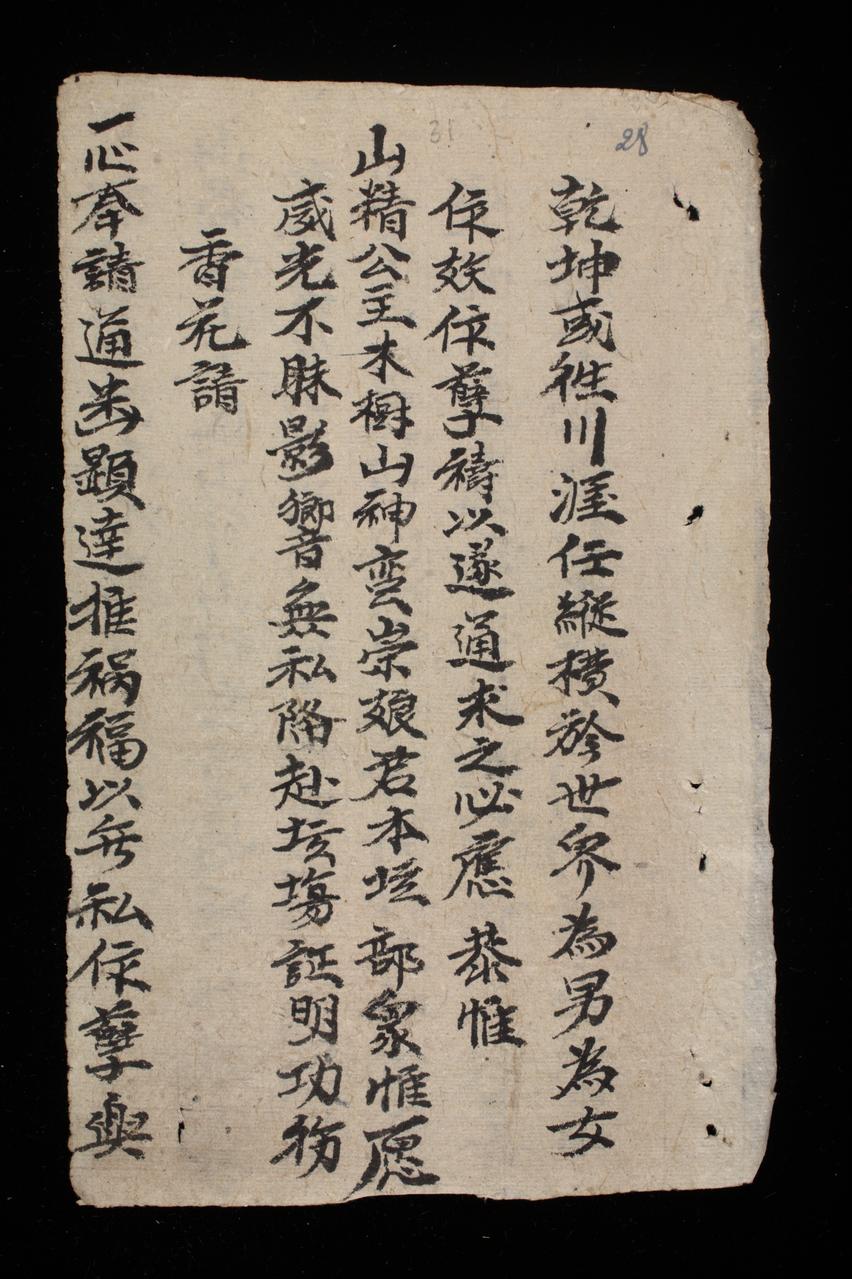 28
31
乾坤或徃川涯任縱橫於世界為男為女
作妖作孽禱以遂通求之必應 恭惟
山精公主木樹山神蛮崇娘君本境部衆惟愿
威光不昧影響無私降赴坛塲証明功㧾
香花請
一心奉請通幽顕達推禍福以無私作孽興